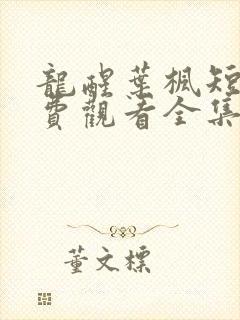 龍醒葉楓短
費觀看全集
董文標